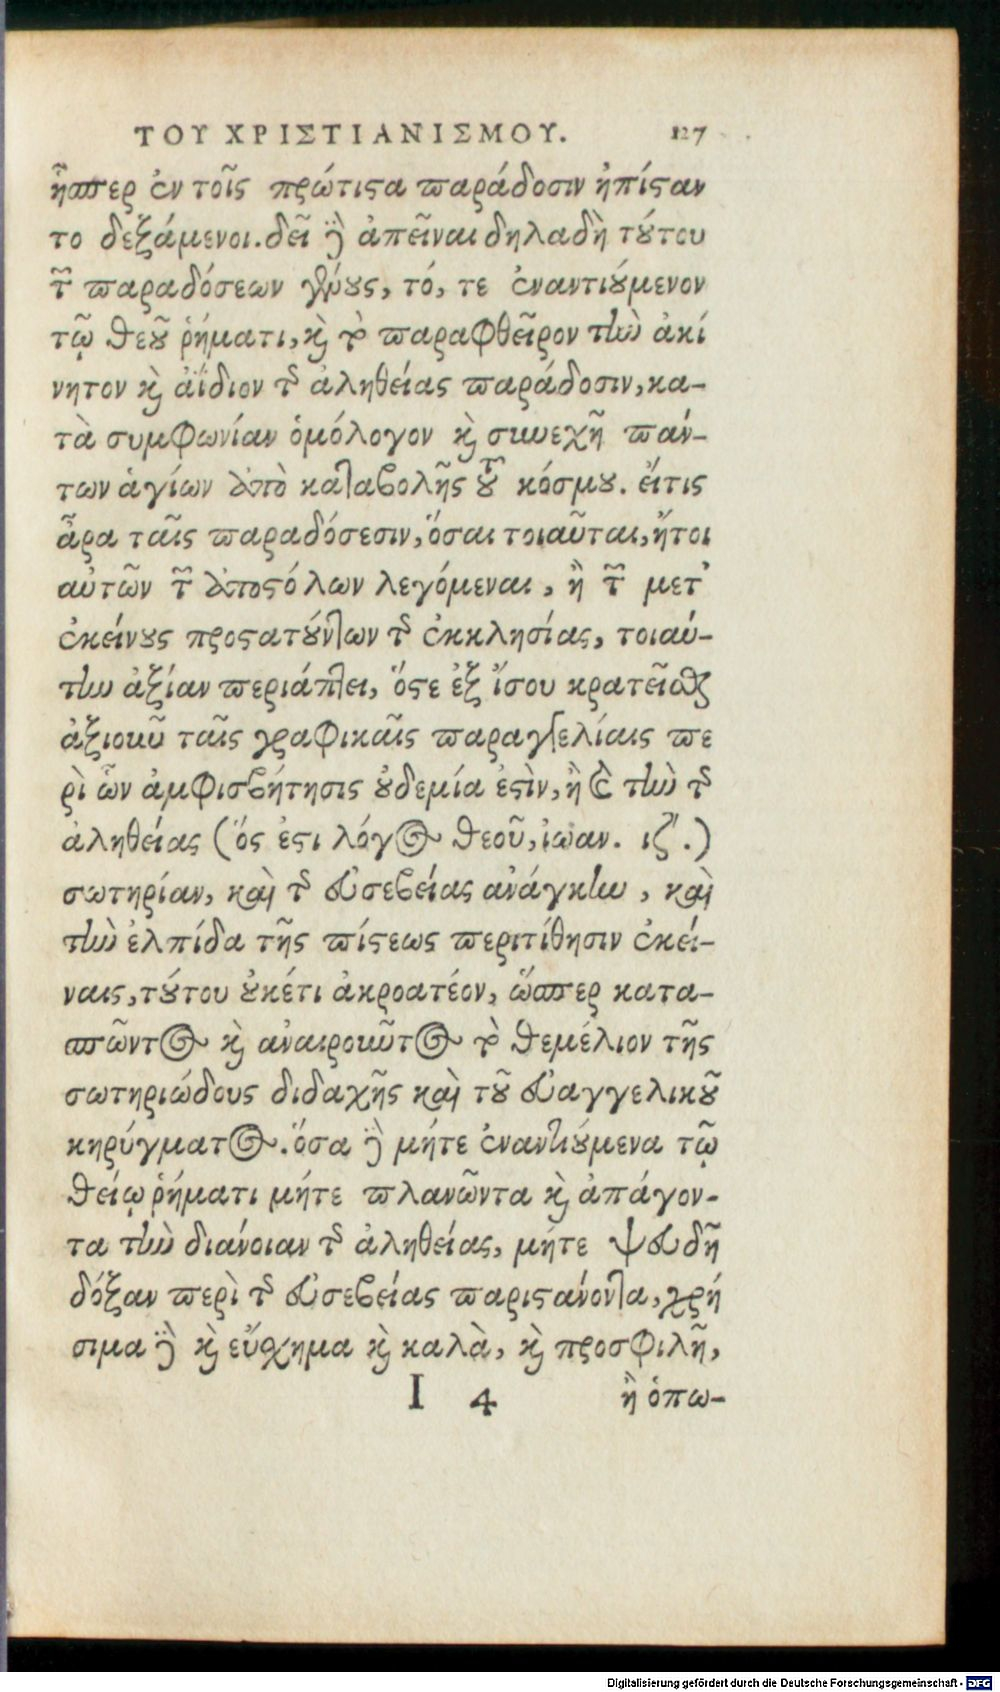 ΤΟΥ ΧΡΙΣΤΙΑΝΙΣΜΟΥ. 127
ᾗπερ ἐν τοῖς πρώτιςα παράδοσιν ἠπίςαν
το δεξάμενοι. δεῖ δὲ ἀπεῖναι δηλαδὴ τούτου
τῶν παραδόσεων γένους, τό, τε ἐναντιούμενον
τῷ θεοῦ ῥήματι, καὶ τὸ παραφθεῖρον τὴν ἀκί
νητον καὶ ἀΐδιον τῆς ἀληθείας παράδοσιν, κα-
τὰ συμφωνίαν ὁμόλογον καὶ συνεχῆ πάν-
των ἁγίων ἀπὸ καταβολῆς τοῦ κόσμου. εἴτις
ἆρα ταῖς παραδόσεσιν, ὅσαι τοιαῦται, ἤτοι
αὐτῶν τῶν ἀποςόλων λεγόμεναι, ἢ τῶν μετ’
ἐκείνους προςατούντων τῆς ἐκκλησίας, τοιαύ-
την ἀξίαν περιάπτει, ὅςε ἐξ ἴσου κρατεῖσθαι
ἀξιοῦν ταῖς γραφικαῖς παραγγελίαις πε
ρὶ ὧν ἀμφισβήτησις οὐδεμία ἐςὶν, ἢ καὶ τὴν τῆς
ἀληθείας (ὅς ἐςι λόγος θεοῦ, ἰωαν. ιζ´.)
σωτηρίαν, καὶ τῆς εὐσεβείας ἀνάγκην, καὶ
τὴν ἐλπίδα τῆς πίςεως περιτίθησιν ἐκεί-
ναις, τούτου οὐκέτι ἀκροατέον, ὥσπερ κατα-
σπῶντος καὶ ἀναιροῦντος τὸ θεμέλιον τῆς
σωτηριώδους διδαχῆς καὶ τοῦ εὐαγγελικοῦ
κηρύγματος. ὅσα δὲ μήτε ἐναντιούμενα τῷ
θείῳ ῥήματι μήτε πλανῶντα καὶ ἀπάγον-
τα τὴν διάνοιαν τῆς ἀληθείας, μήτε ψευδῆ
δόξαν περὶ τῆς εὐσεβείας παριςάνοντα, χρή
σιμα δὲ καὶ εὔσχημα καὶ καλὰ, καὶ προσφιλῆ,
I 4 ἢ ὁπω-
Digitalisierung gefördert durch die Deutsche Forschungsgemeinschaft - DFG